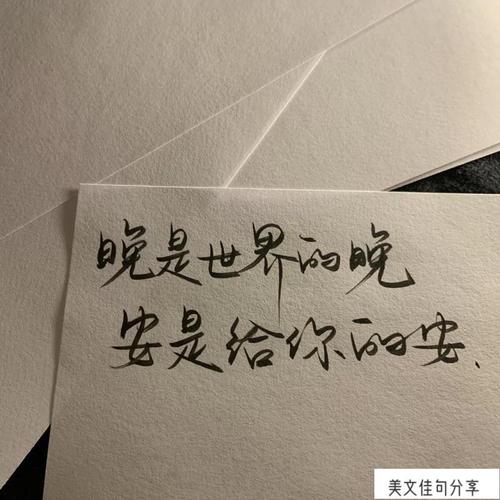 晚是世界的晚
安是给你的安.
美文佳句分享